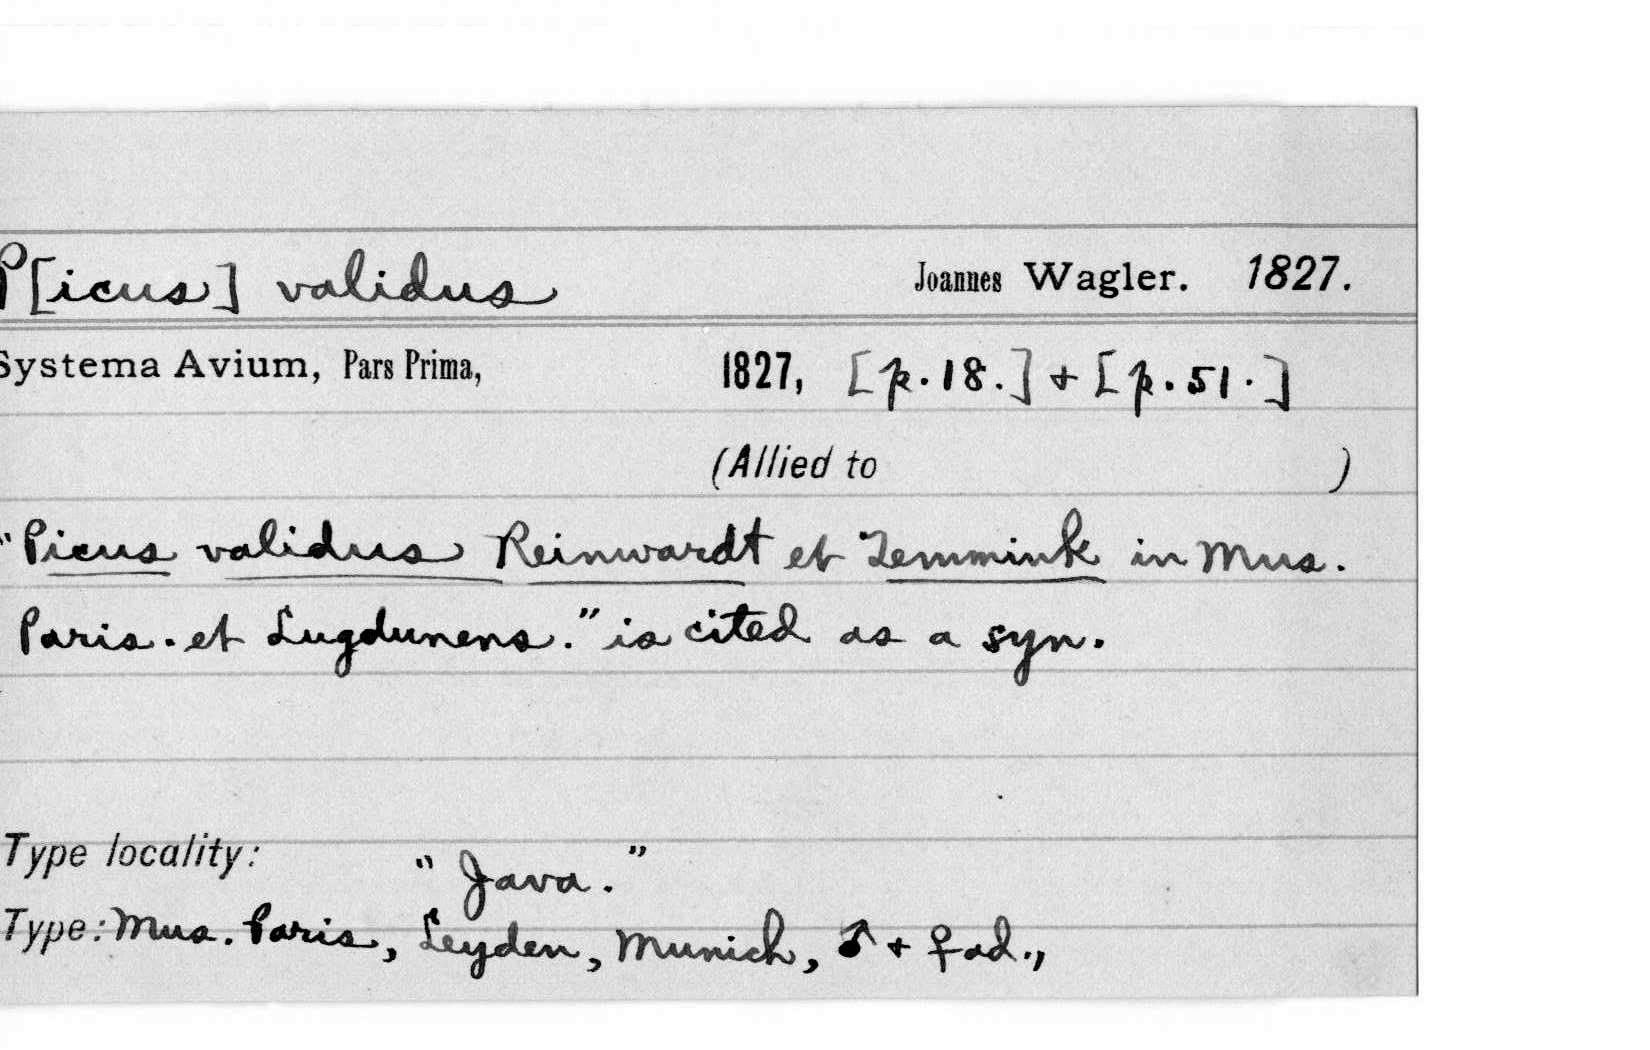 P[icus] validus Joannes Wagler. 1827.
Systema Avium, Pars Prima, 1827, [p. 18.] + [p. 51.]
(Allied to )
"Picus validus Reinwardt et Temmink in Mus.
Paris. et Lugdunens." is cited as a syn.
Type locality: "Java."
Type: Mus. Paris, Leyden, Munich, ♂ + ♀ ad.,